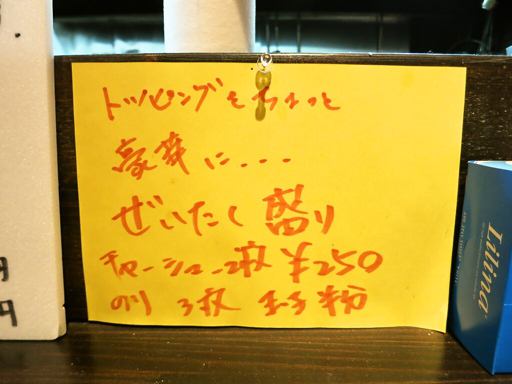 トッピングをちょっと
豪華に...
ぜいたく盛り
チャーシュー2枚 ¥250
のり 3枚 玉子 半分
円
円
Lilina